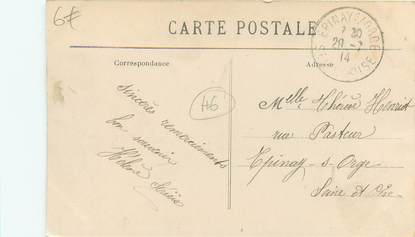 6€
CARTE POSTALE
EPINAY S/ORGE
7 30
20 - 7
14
OISE
Correspondance
Adresse
46
Sincères remerciements
bon souvenir
Hélène
Melle Henriet
rue Pasteur
Epinay-s-Orge
Seine et Oise